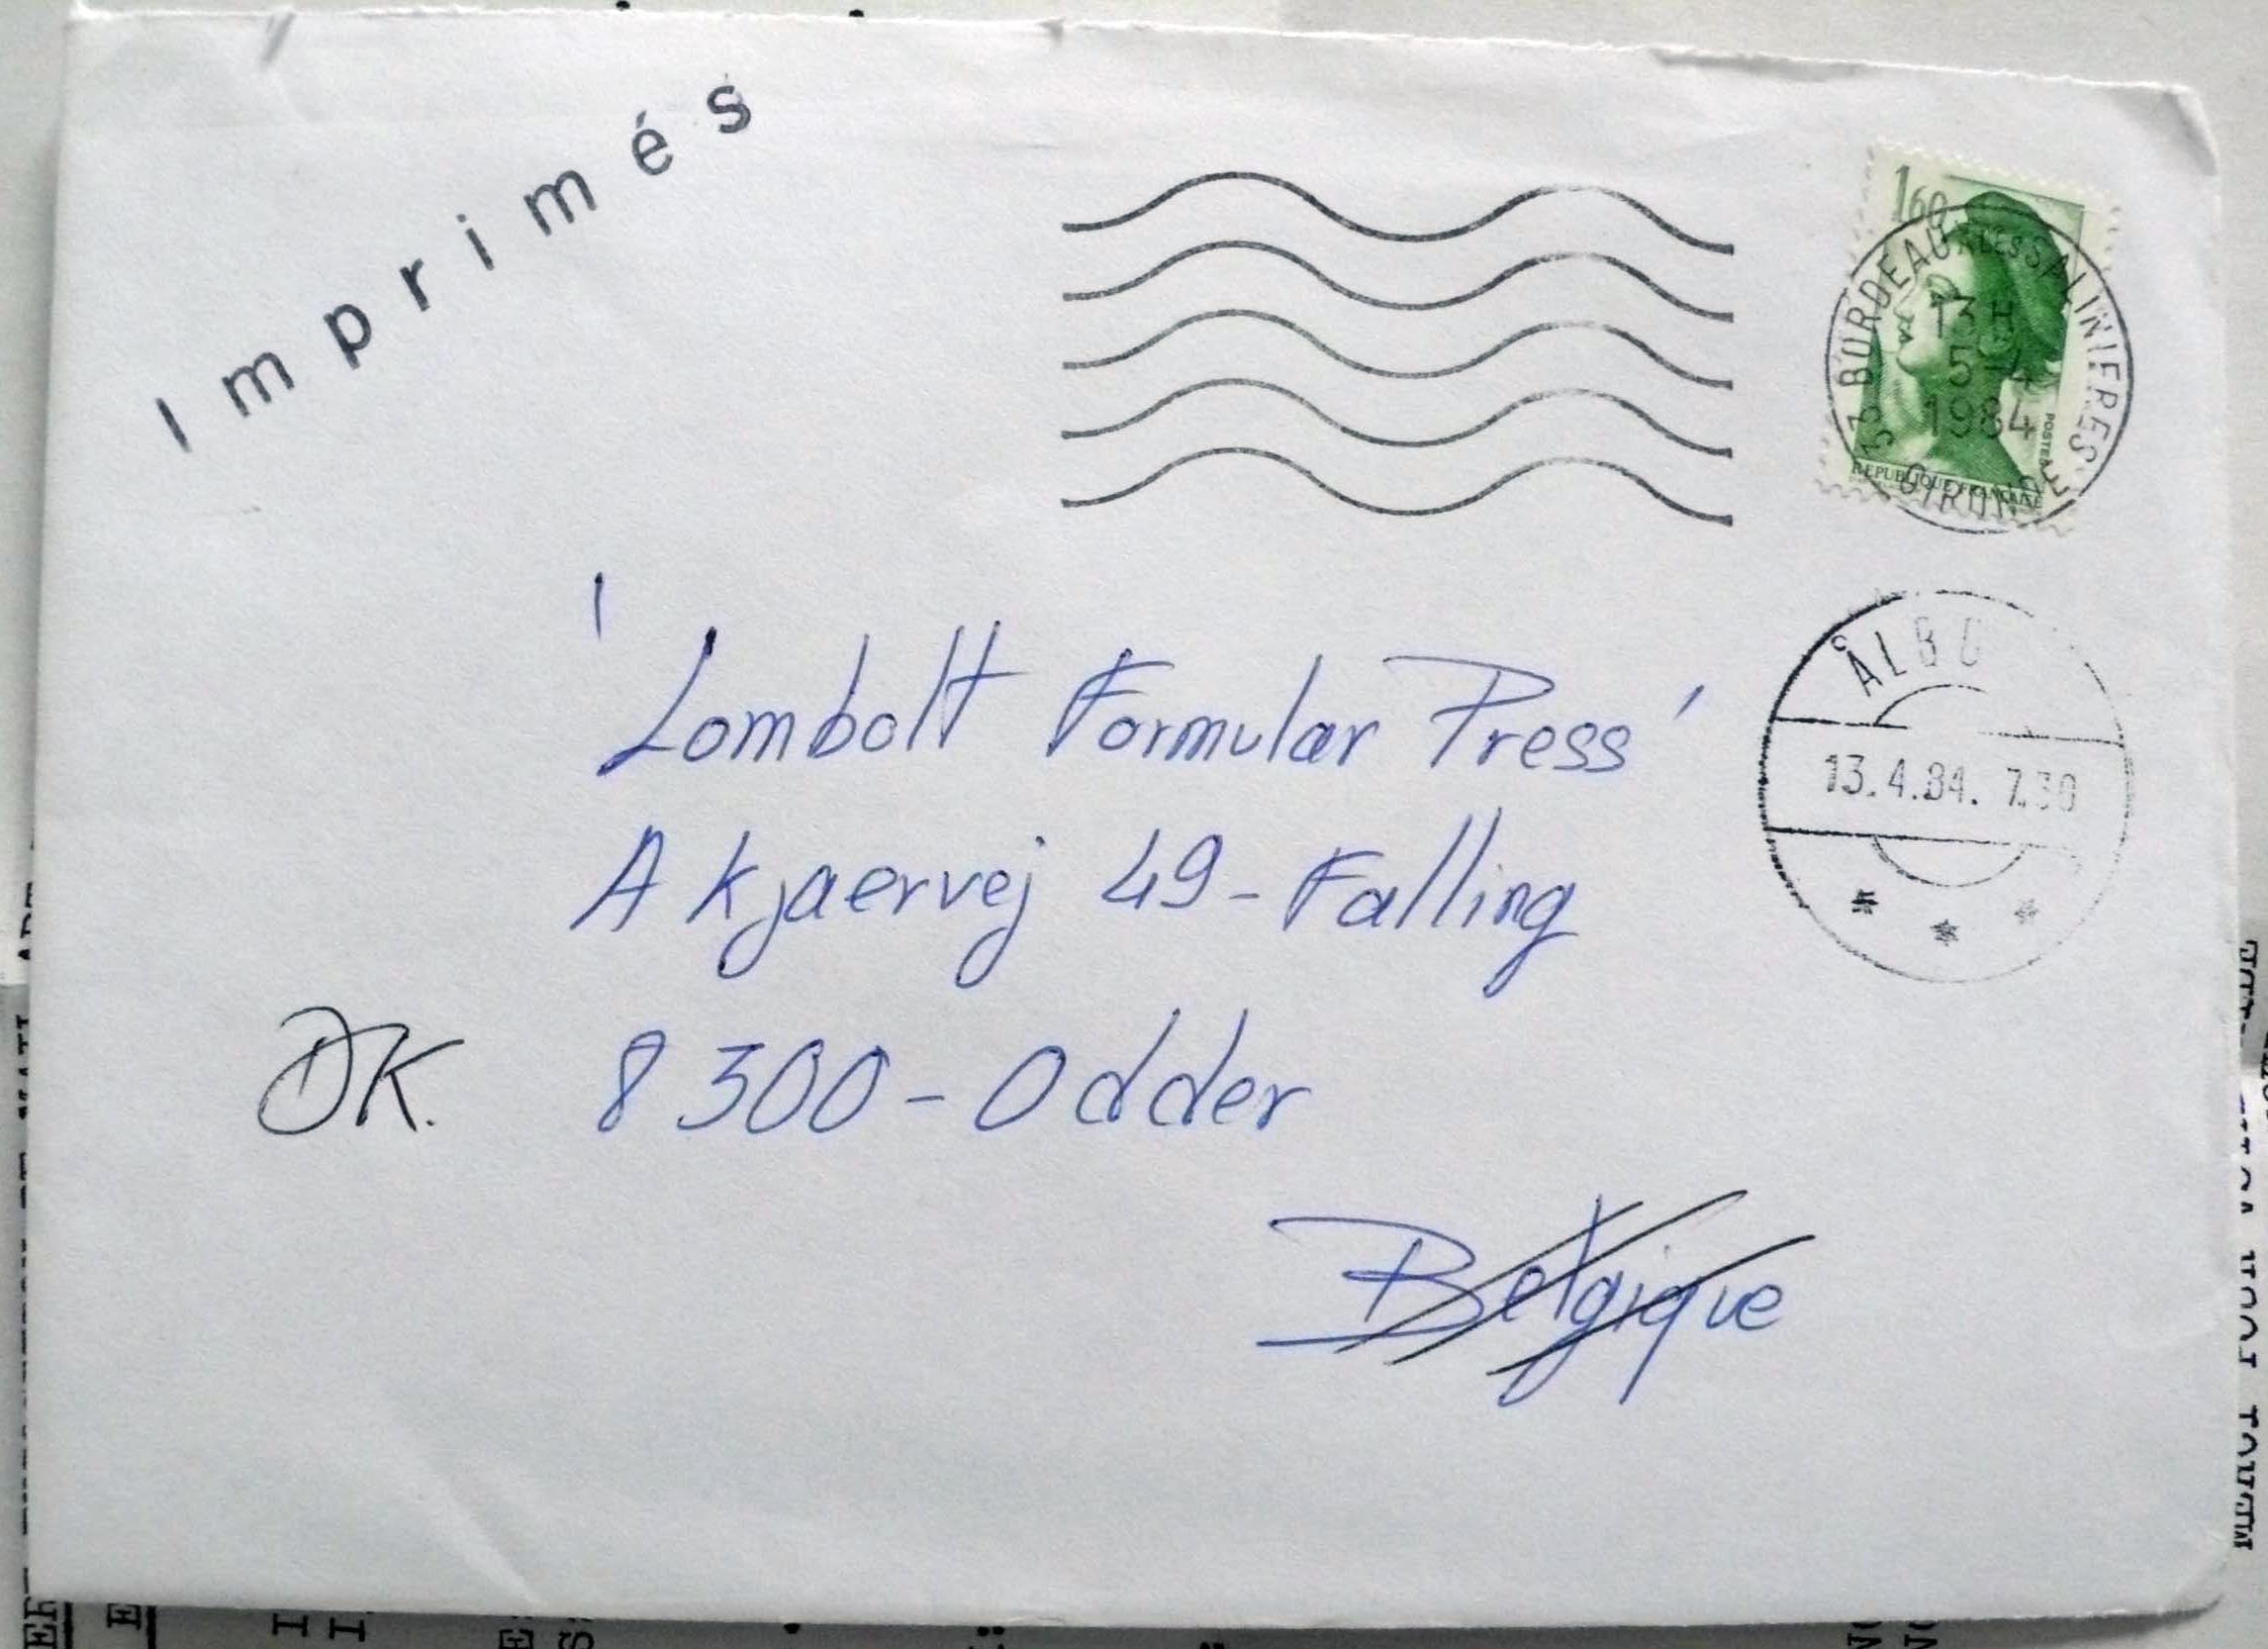 Imprimés
1,60
REPUBLIQUE FRANÇAISE
POSTES
33 BORDEAUX LES SALINIERES
13 H
5-4
1984
GIRONDE
'Lombolt Formular Press'
ÅLBO
13.4.84. 7.30
Akjaervej 49-Falling
DK. 8300-Odder
Belgique